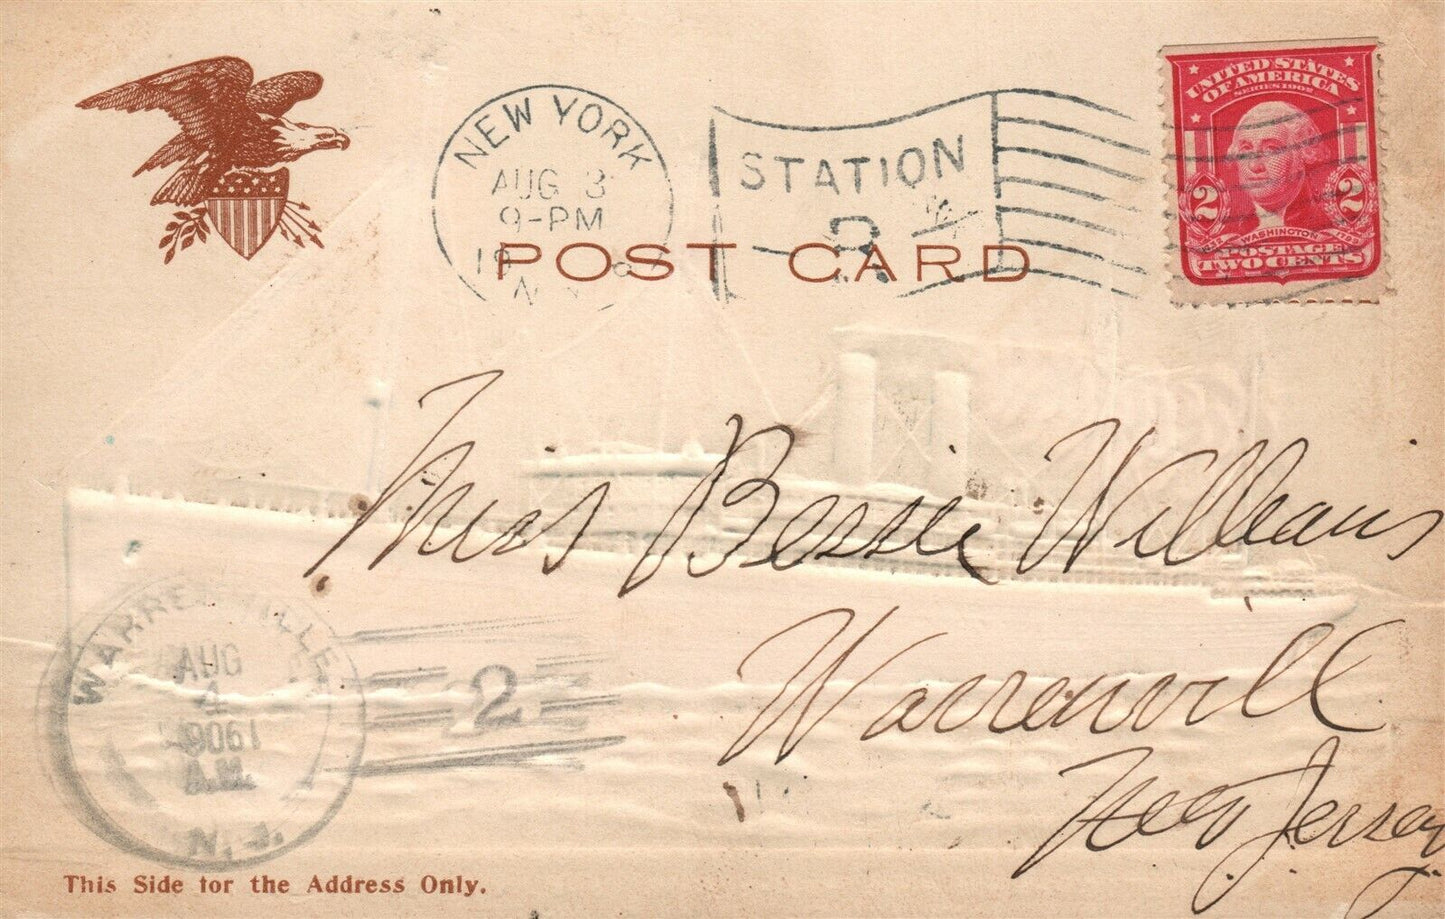 NEW YORK
AUG 3
9-PM
19
N.
STATION
POST CARD
UNITED STATES
OF AMERICA
SERIES 1902
2 2
WASHINGTON
POSTAGE
TWO CENTS
Miss Bessie Williams
Warrenvill
New Jersey
WARRENVILLE
AUG
4
1906
A.M.
N. J.
2
This Side for the Address Only.